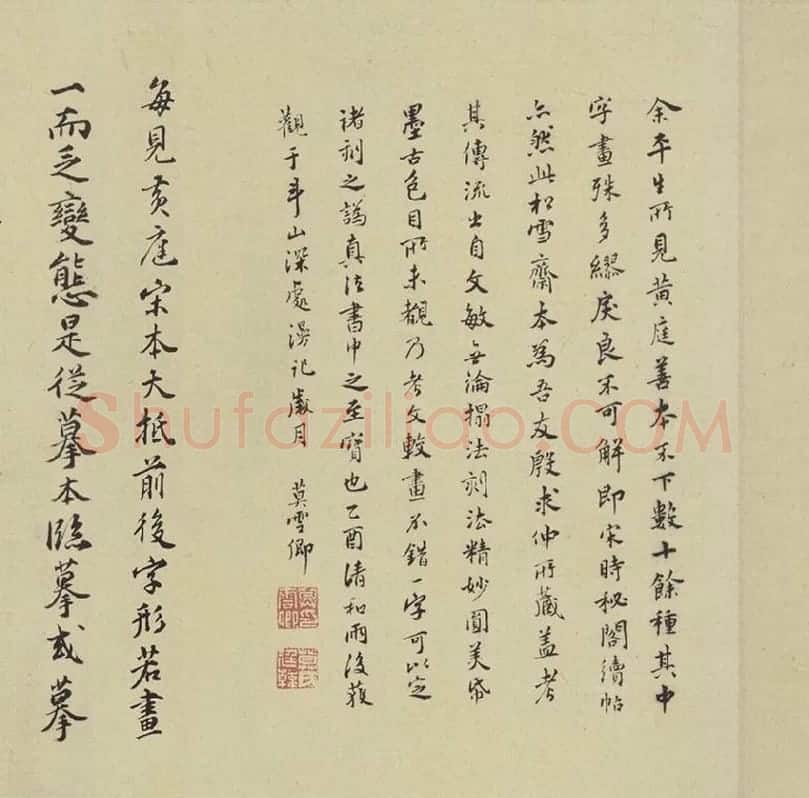 余平生所見黃庭善本不下數十餘種其中
字畫殊多繆戾良不可解即宋時秘閣續帖
亦然此松雪齋本為吾友殷求仲所藏蓋考
其傳流出自文敏無論搨法刻法精妙圓美紙
墨古色目所未覩乃考文較畫不錯一字可以定
諸刻之譌真法書中之至寶也乙酉清和雨後獲
觀于山深處漫記歲月 莫雲卿
每見黃庭宋本大抵前後字形若畫
一而乏變態是從摹本臨摹或摹
Shufaziliao.COM